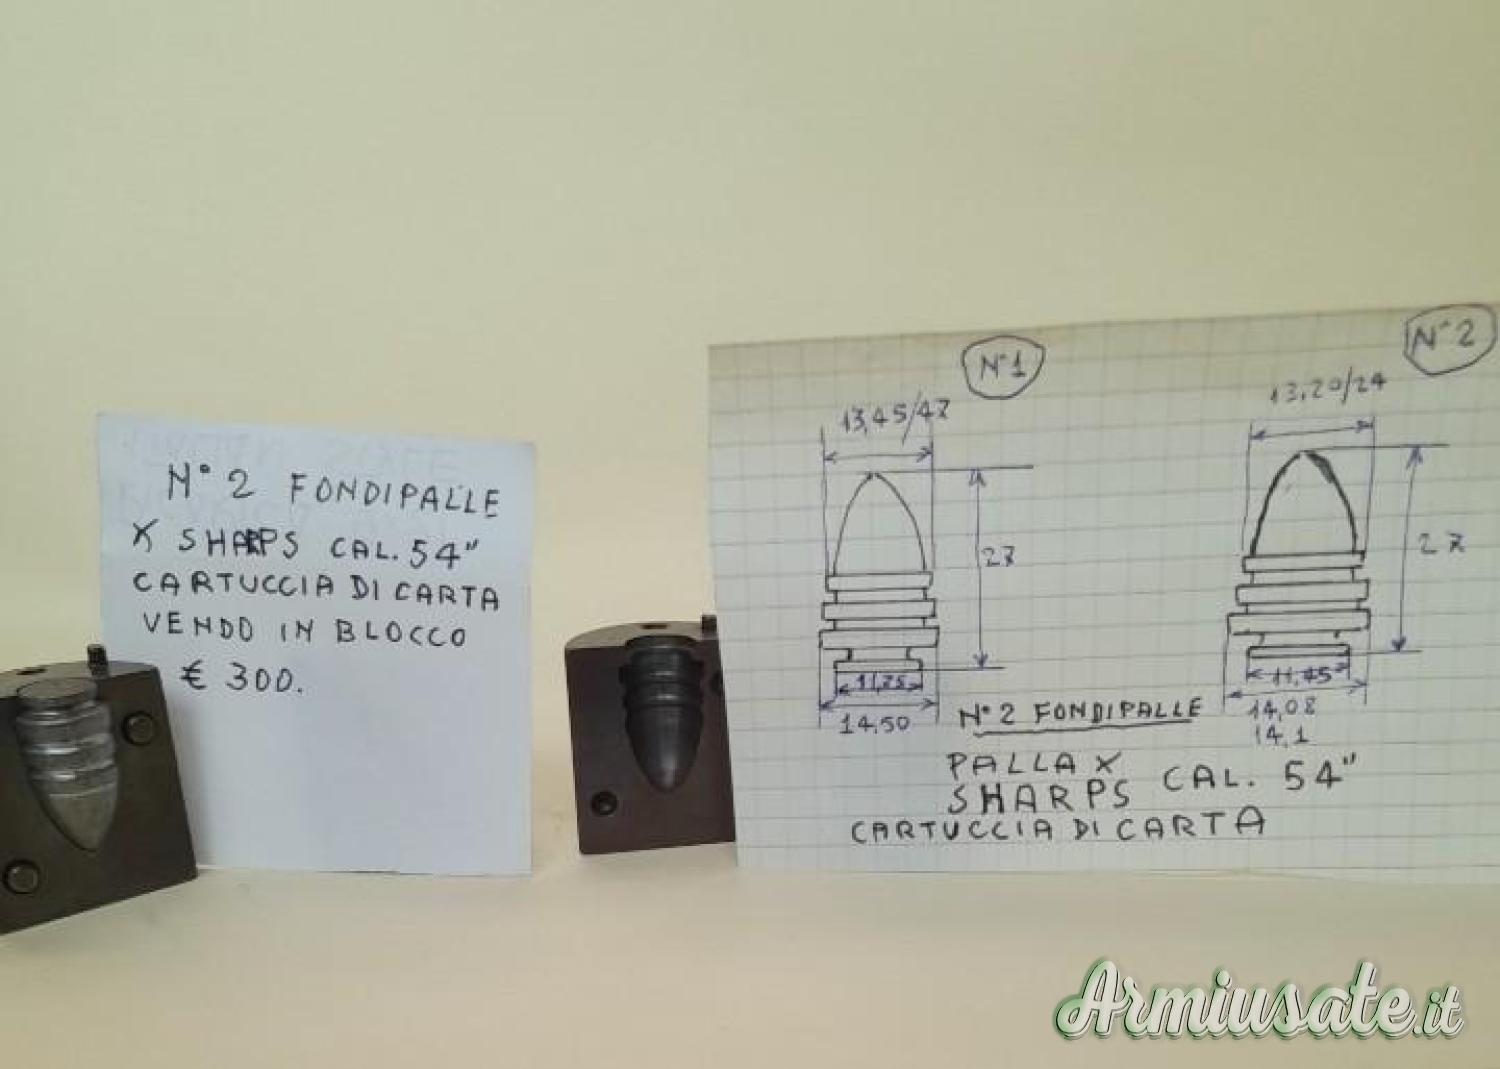 N° 2 FONDIPALLE
X SHARPS CAL. 54"
CARTUCCIA DI CARTA
VENDO IN BLOCCO
€ 300.
N°1
13,45/47
27
11,25
14,50
N°2
13,20/24
27
11,45
14,08
14,1
N° 2 FONDIPALLE
PALLA X
SHARPS CAL. 54"
CARTUCCIA DI CARTA
Armiusate.it